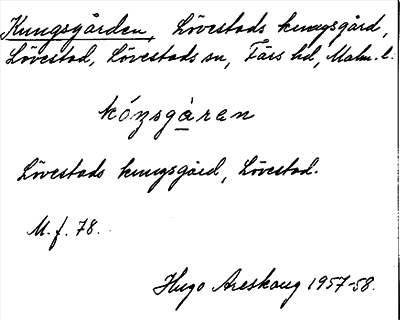 Kungsgården, Lövestads kungsgård,
Lövestad, Lövestads sn, Färs hd, Malm. l.
kózsgàren
Lövestads kungsgård, Lövestad.
M. f. 78.
Hugo Areskoug 1957-58.